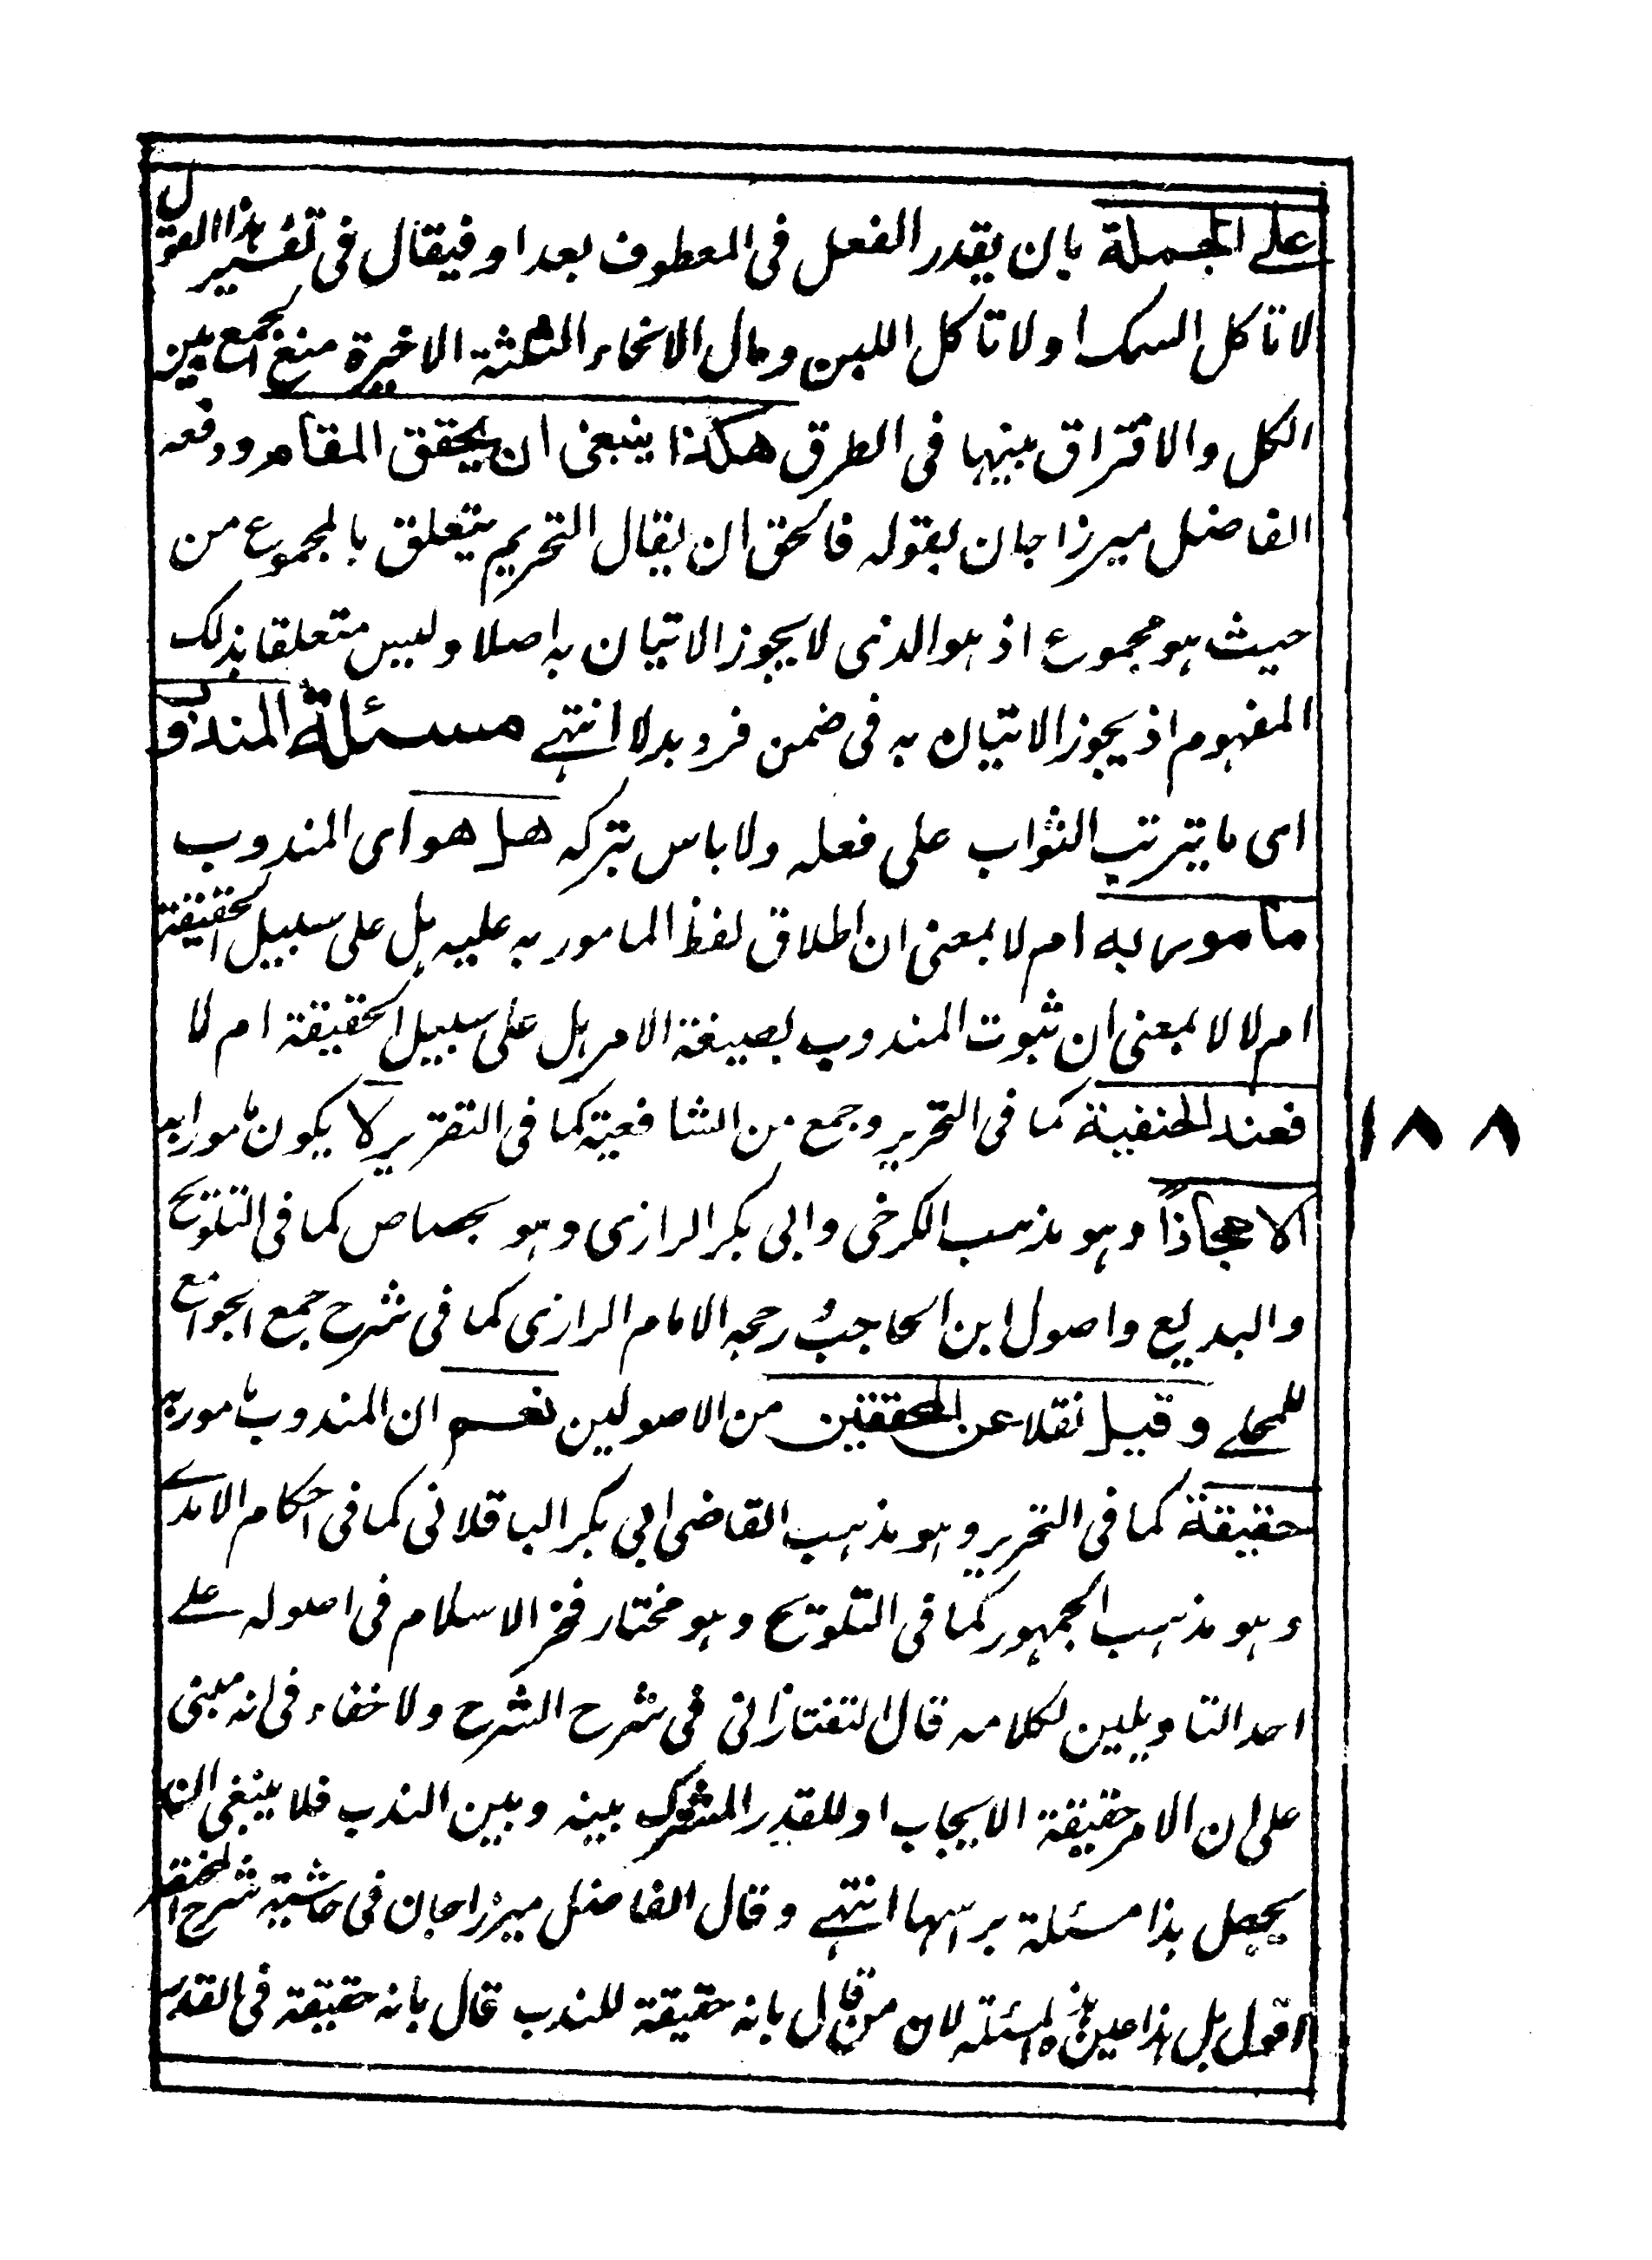 على الجملة بان يقدر الفعل فى المعطوف بعد او فيقال فى تفسير هذا القول
لا تاكل السمك او لا تاكل اللبن ومال الانحاء الثلثة الاخيرة منع الجمع بين
الكل والافتراق بينها فى الطرق هكذا ينبغى ان يحقق المقام ودفعه
الفاضل ميرزا جان بقوله فالحق ان يقال التحريم يتعلق بالمجموع من
حيث هو مجموع اذ هو الذى لا يجوز الاتيان به اصلا وليس متعلقا بذلك
المفهوم اذ يجوز الاتيان به فى ضمن فرد بدلا انتهى مسئلة المندوب
اى ما يترتب الثواب على فعله ولا باس بتركه هل هو اى المندوب
مامور به ام لا بمعنى ان اطلاق لفظ المامور به عليه هل على سبيل الحقيقة
ام لا لا بمعنى ان ثبوت المندوب بصيغة الامر هل على سبيل الحقيقة ام لا
فعند الحنفية كما فى التحرير وجمع من الشافعية كما فى التقرير لا يكون مامورا به
الا مجازًا وهو مذهب الكرخى وابى بكر الرازى وهو بصاص كما فى التلويح
والبديع واصول ابن الحاجب ورجحه الامام الرازى كما فى شرح جمع الجوامع
للمحلى وقيل نقلا عن المحققين من الاصوليين نعم ان المندوب مامور به
حقيقة كما فى التحرير وهو مذهب القاضى ابى بكر الباقلانى كما فى احكام الامدى
وهو مذهب الجمهور كما فى التلويح وهو مختار فخر الاسلام فى اصوله على
احد التاويلين لكلامه قال التفتازانى فى شرح الشرح ولا خفاء فى انه مبنى
على ان الامر حقيقة الايجاب او للقدر المشترك بينه وبين الندب فلا ينبغى ان
يجعل هذا مسئلة براسها انتهى وقال الفاضل ميرزا جان فى حاشية شرح المختصر
اقول بل هذا عين هذه المسئلة لان من قال بانه حقيقة للندب قال بانه حقيقة فى القدر
١٨٨